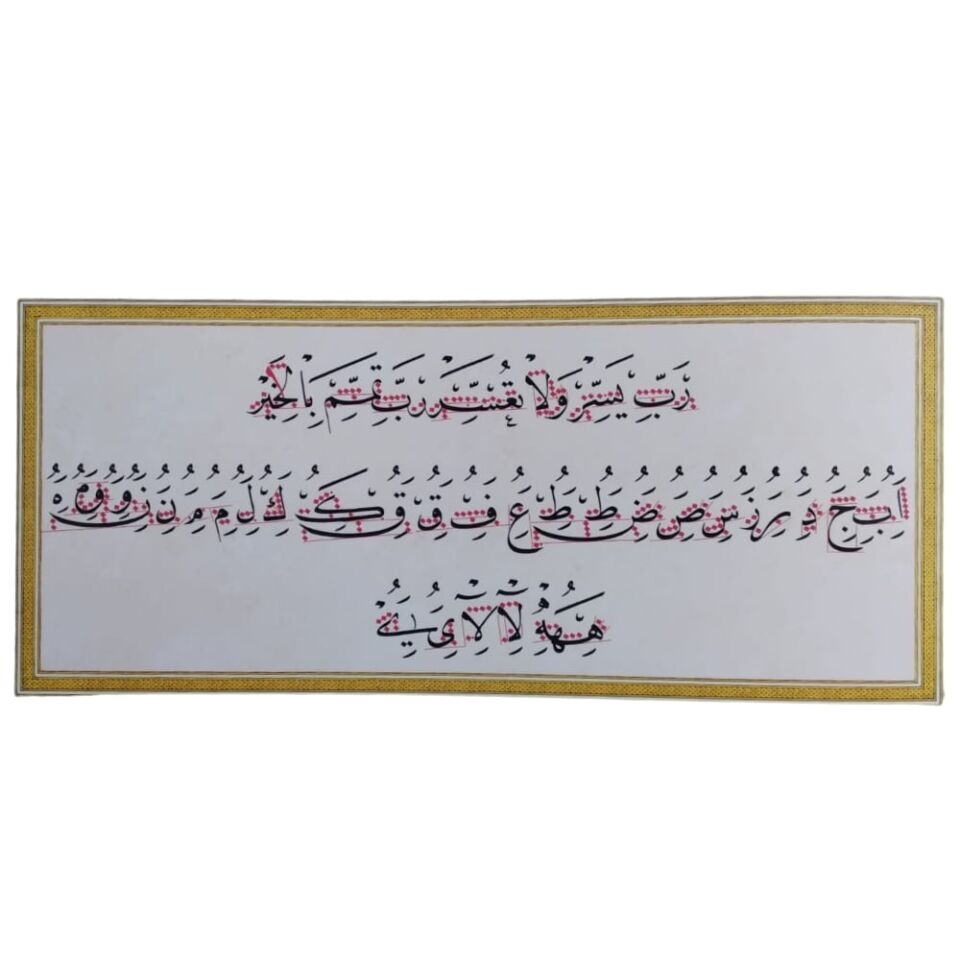 رَبِّ يَسِّرْ وَلَا تُعَسِّرْ رَبِّ تَمِّمْ بِالْخَيْرِ
ا ب ج د ر ز س ص ض ط ط ع ف ق ق ك ك ل م م ن ن و و ه
ه ه لا لا ى ى